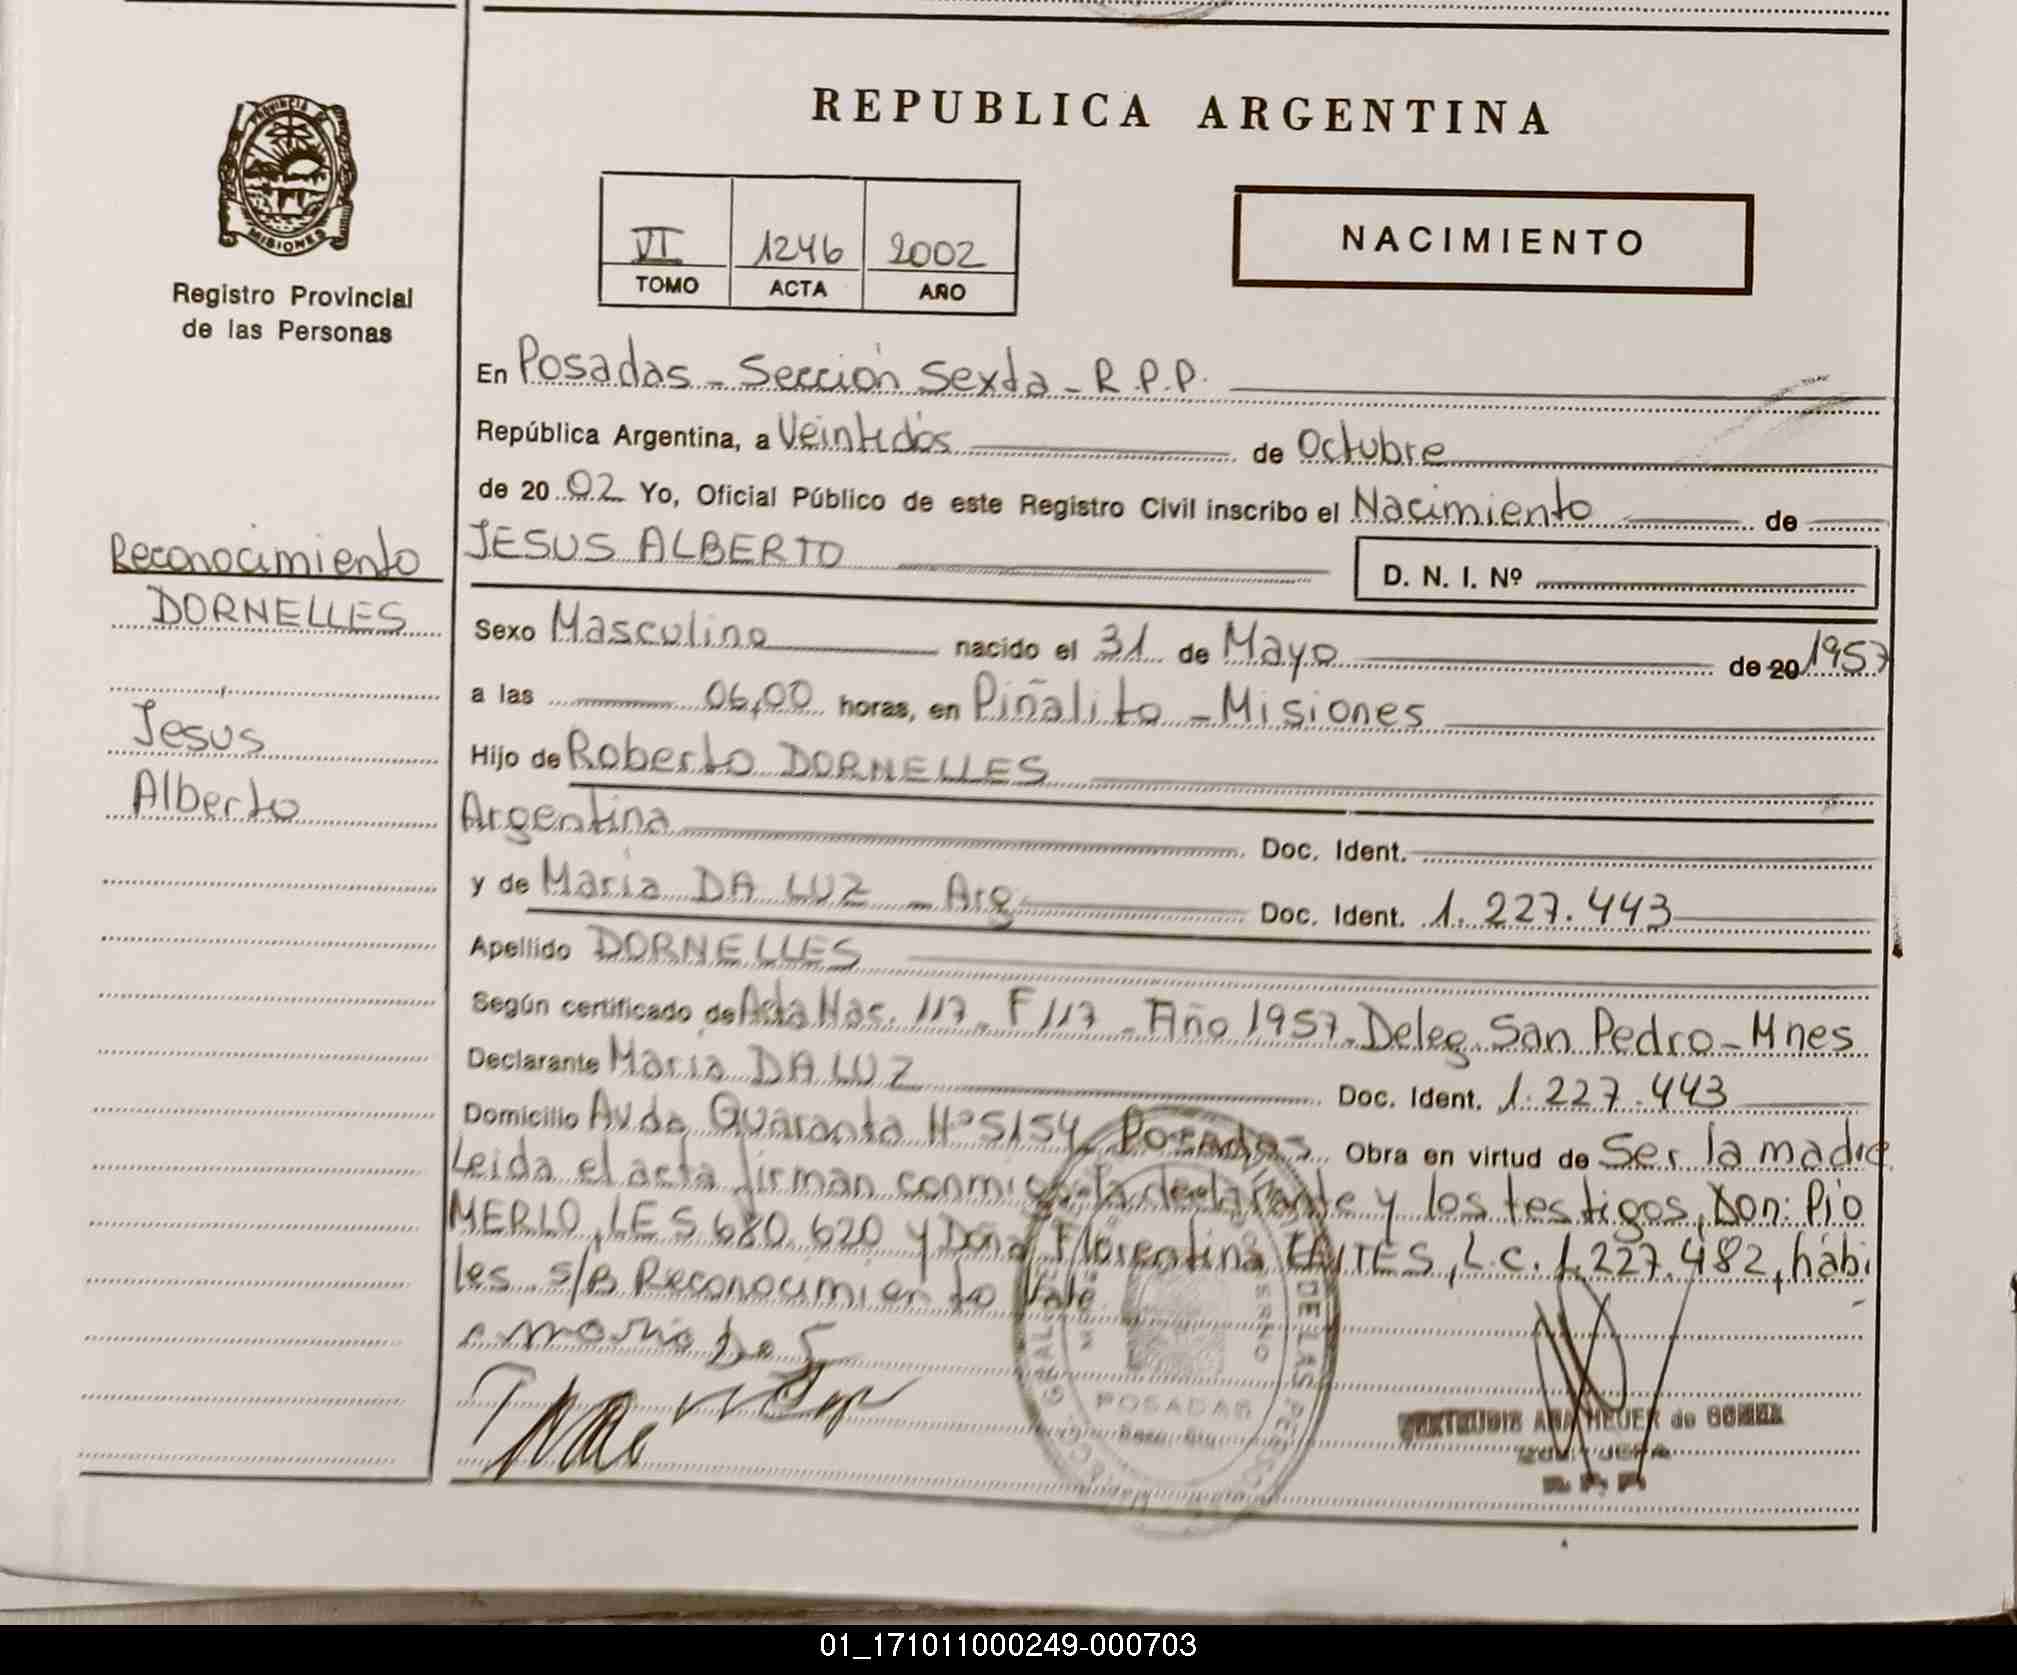 REPUBLICA ARGENTINA
PROVINCIA DE
MISIONES
Registro Provincial
de las Personas
VI 1246 2002
TOMO ACTA AÑO
NACIMIENTO
En Posadas - Sección Sexta - R.P.P.
República Argentina, a Veintidós de Octubre
de 20 02 Yo, Oficial Público de este Registro Civil inscribo el Nacimiento de
JESUS ALBERTO
D. N. I. Nº
Reconocimiento
DORNELLES
Jesus
Alberto
Sexo Masculino nacido el 31 de Mayo de 20 1957
a las 06,00 horas, en Piñalito - Misiones
Hijo de Roberto DORNELLES
Argentina Doc. Ident.
y de Maria DA LUZ - Arg Doc. Ident. 1.227.443
Apellido DORNELLES
Según certificado de Acta Nac. 117 - F 117 - Año 1957 - Deleg. San Pedro - Mnes
Declarante Maria DA LUZ Doc. Ident. 1.227.443
Domicilio Avda Quaranta Nº 5154 Posadas Obra en virtud de Ser la madre
Leida el acta firman conmigo la declarante y los testigos, Don: Pío
MERLO, LE 5680.620 y Doña Florentina, L.C. 1.227.482, hábi
les s/B Reconocimiento Vale
DE LAS PERSONAS
POSADAS
ANA HEUER de
JEFA
R. P. P.
01_171011000249-000703